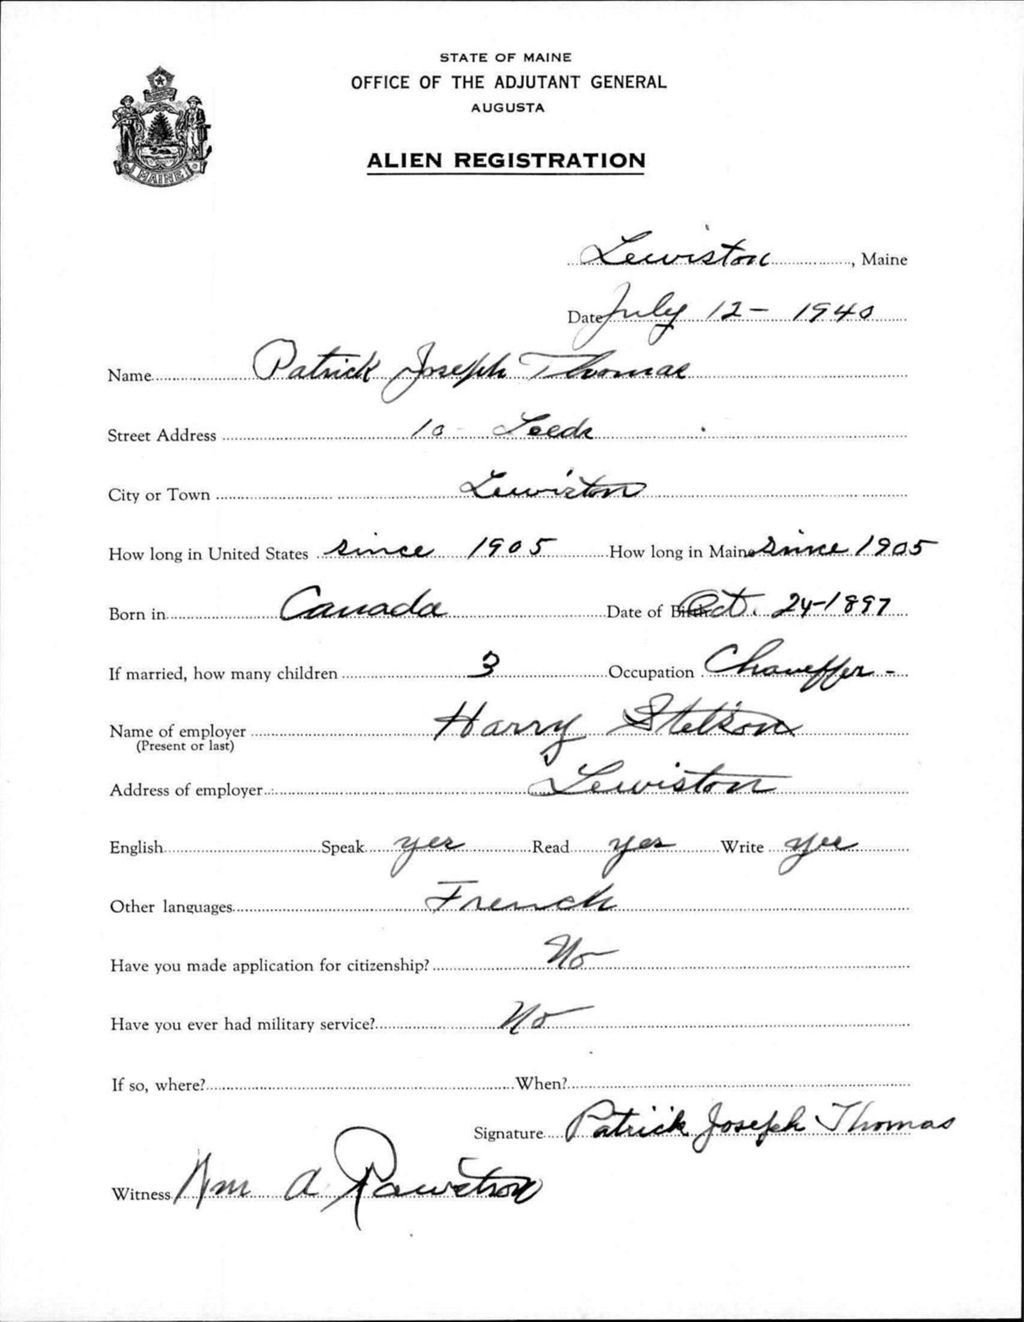 STATE OF MAINE
OFFICE OF THE ADJUTANT GENERAL
AUGUSTA
MAINE
ALIEN REGISTRATION
Lewiston, Maine
Date July 12 - 1940
Name Patrick Joseph Thomas
Street Address 10 - Leeds
City or Town Lewiston
How long in United States since 1905 How long in Maine since 1905
Born in Canada Date of Birth Oct. 24-1897
If married, how many children 3 Occupation Chaueffer -
Name of employer Harry Stetson
(Present or last)
Address of employer Lewiston
English Speak yes Read yes Write yes
Other languages French
Have you made application for citizenship? No
Have you ever had military service? No
If so, where? When?
Signature Patrick Joseph Thomas
Witness Wm A